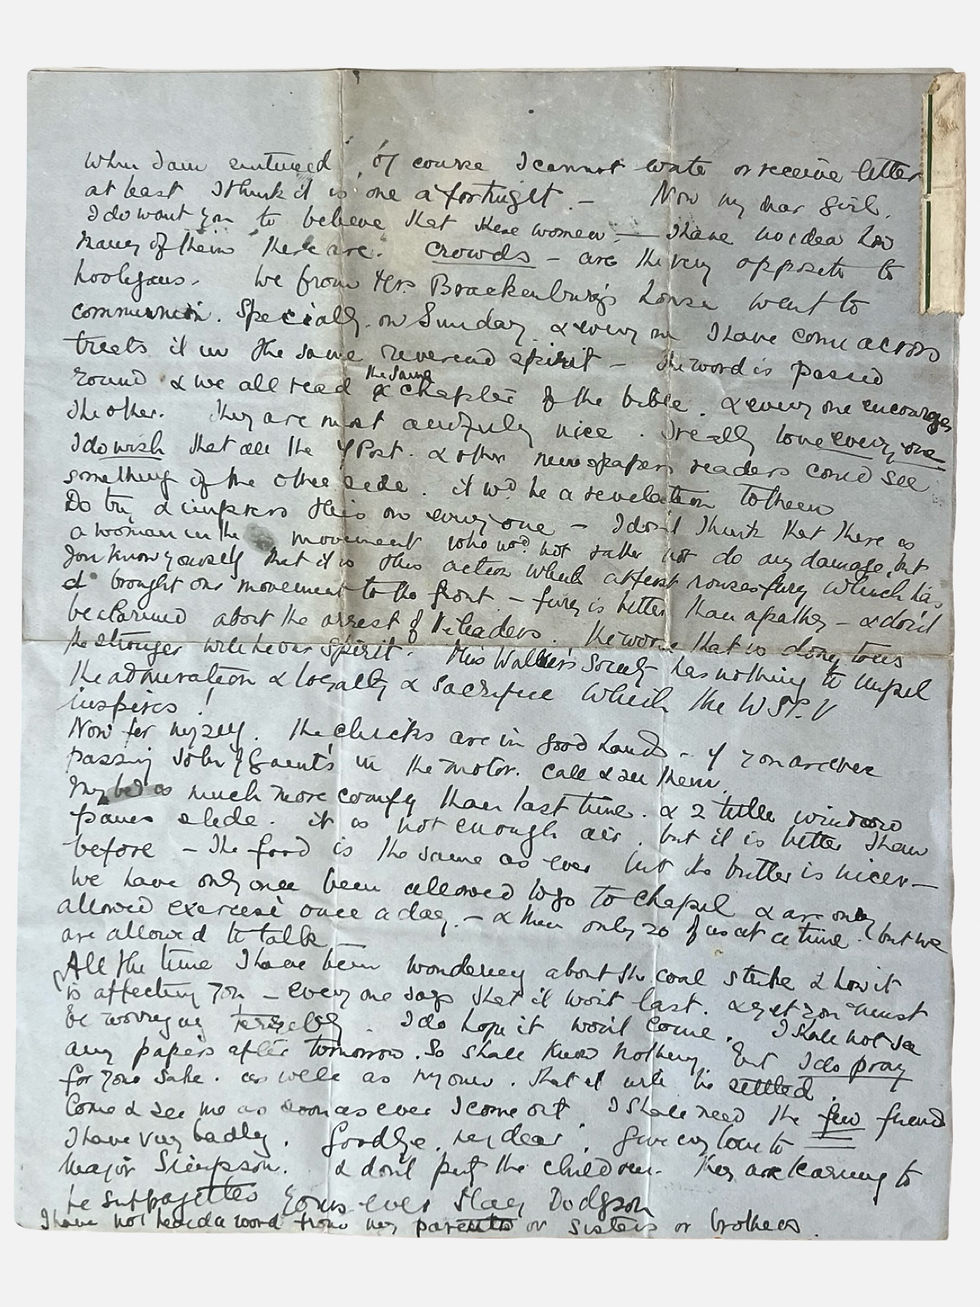 When I am sentenced, of course I cannot write or receive letter
at least I think it is one a fortnight. – Now my dear girl.
I do want you to believe that these women – I have no idea how
many of them there are. Crowds – are the very opposite to
hooligans. We from Mrs. Brackenbury's house went to
communion. Specially on Sunday & every one I have come across
treats it in the same reverend spirit – The word is passed
round & we all read the same chapter of the bible. & every one encourages
the other. They are most awfully nice. I really love every one
I do wish that all the M Post. & other newspapers readers could see
something of the other side. it wd be a revelation to them
Do try & impress this on every one – I dont think that there is
a woman in the movement who wd not rather not do any damage, but
you know yourself that it is this action which rouses fury which has
brought our movement to the front – fury is better than apathy – & dont
be alarmed about the arrest of the leaders. The worse that is done to us
the stronger will be our spirit. Miss Society has nothing to
the admiration & loyalty & sacrifice which the W.S.P.U
inspires!
Now for myself. The chicks are in good hands – if you are ever
passing John of Gaunt's in the motor. Call & see them.
My bed is much more comfy than last time. & 2 little window
panes slide. it is not enough air. but it is better than
before – The food is the same as ever but the butter is nicer –
We have only once been allowed to go to chapel & are only
allowed exercise once a day. – & then only 20 of us at a time. but we
are allowed to talk
All the time I have been wondering about the coal strike & how it
is affecting you – every one says that it wont last. & yet you must
be worrying terribly. I do hope it wont come. I shall not see
any papers after tomorrow. So shall know nothing. but I do pray
for your sake. as well as my own. that it will be settled.
Come & see me as soon as ever I come out I shall need the few friends
I have very badly. Goodbye, my dear. Give my love to
Major Simpson. & dont the children. They are learning to
be suffragettes Yours ever May Dodgson
I have not had a word from my parents or sisters or brothers.